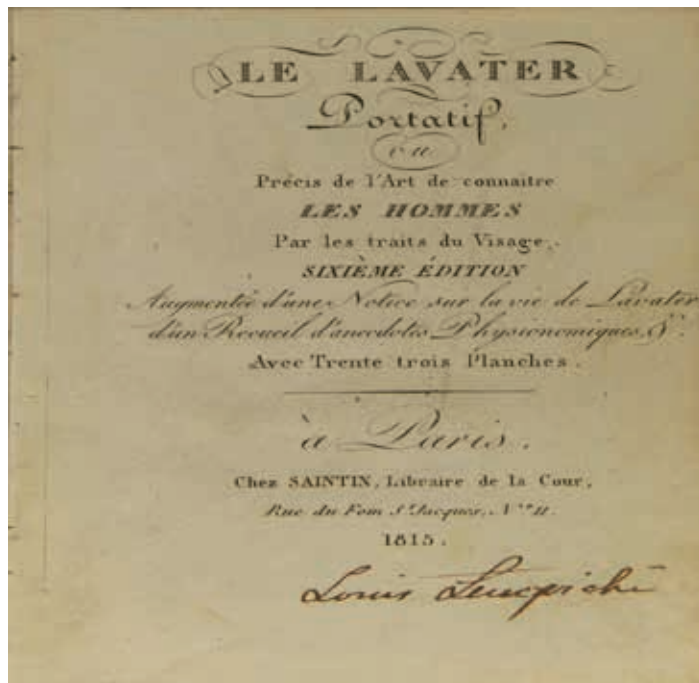 LE LAVATER
Portatif,
ou
Précis de l'Art de connaitre
LES HOMMES
Par les traits du Visage.
SIXIÈME ÉDITION
Augmentée d'une Notice sur la vie de Lavater
d'un Recueil d'anecdotes Physionomiques, &.
Avec Trente trois Planches.
à Paris.
Chez SAINTIN, Libraire de la Cour,
Rue du Foin St. Jacques, N.º 11.
1815.
Louis